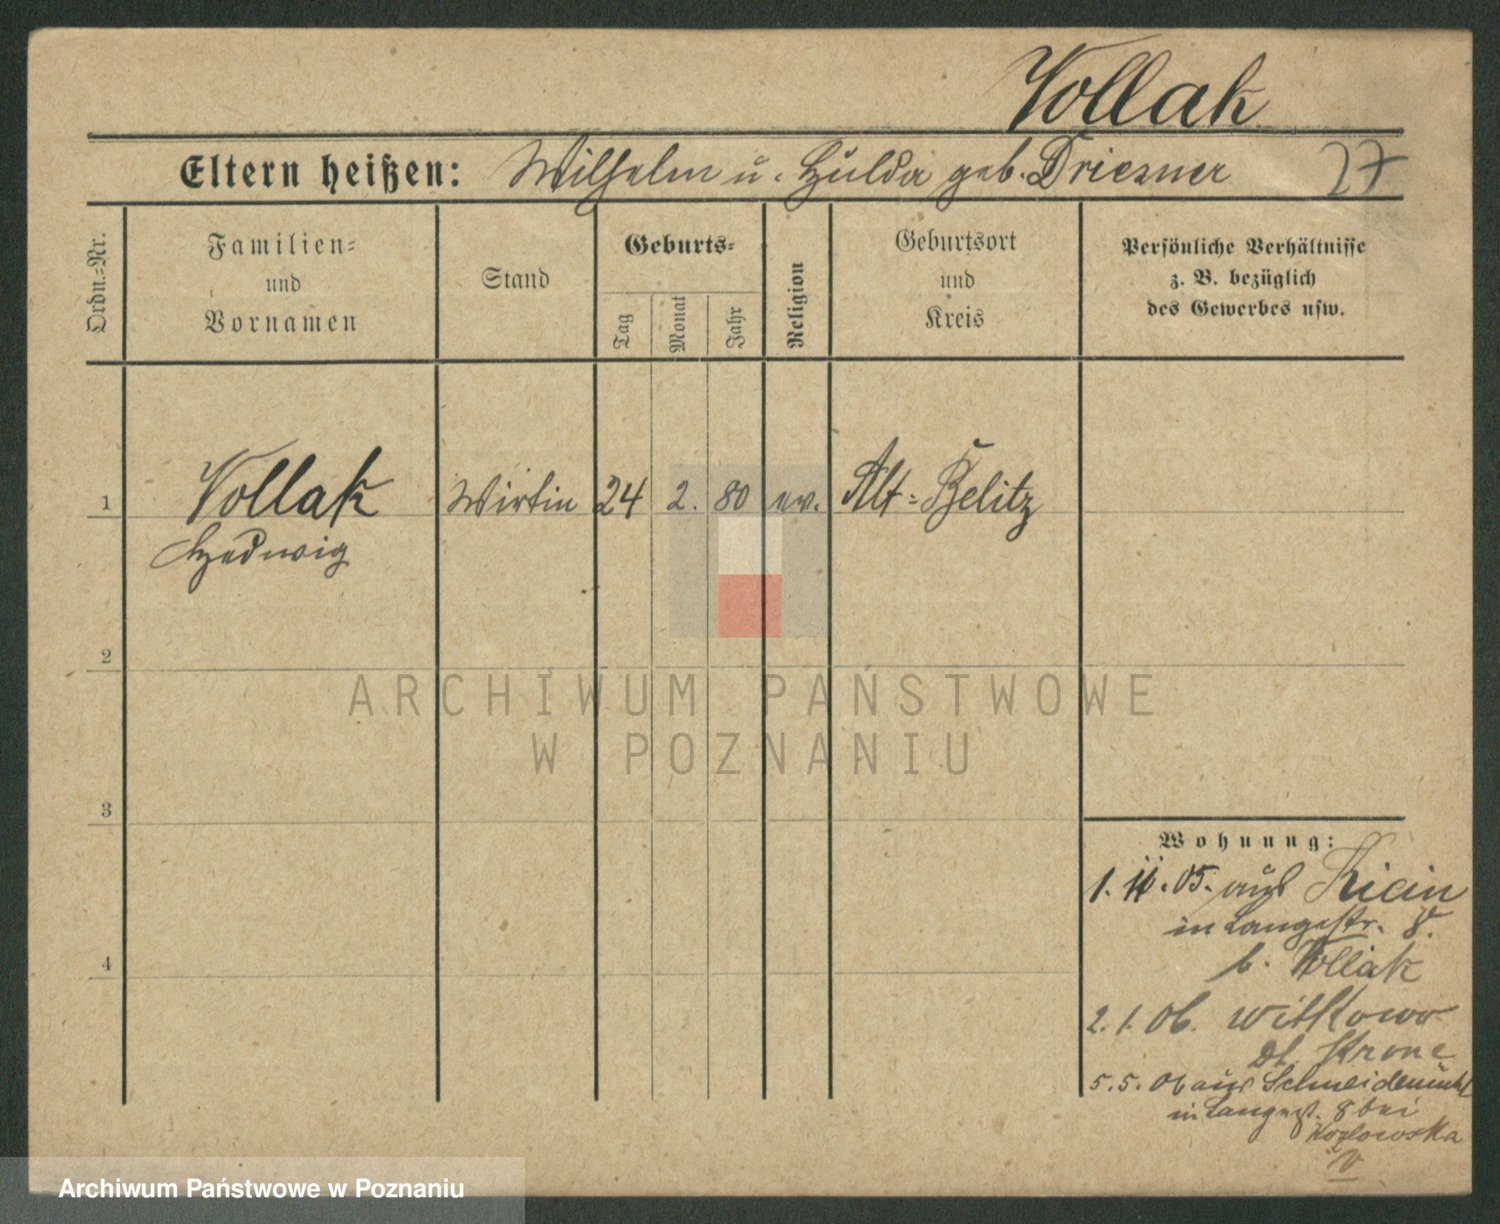 Vollak
Eltern heißen: Wilhelm u. Hulda geb. Driesner 27
Ordn.=Nr.
Familien=
und
Vornamen
Stand
Geburts=
Tag
Monat
Jahr
Religion
Geburtsort
und
Kreis
Persönliche Verhältnisse
z. B. bezüglich
des Gewerbes usw.
1 Vollak Wirtin 24 2. 80 ev. Alt=Belitz
Hedwig
2
ARCHIWUM PAŃSTWOWE
W POZNANIU
3
Wohnung:
1. 11. 05. aus Kicin
in Langestr. 8.
b. Vollak
4
2. 1. 06. Witkowo
Dt. Krone
5. 5. 06 aus Schneidemühl
in Langestr. 8 bei
Kozlowska
V
Archiwum Państwowe w Poznaniu